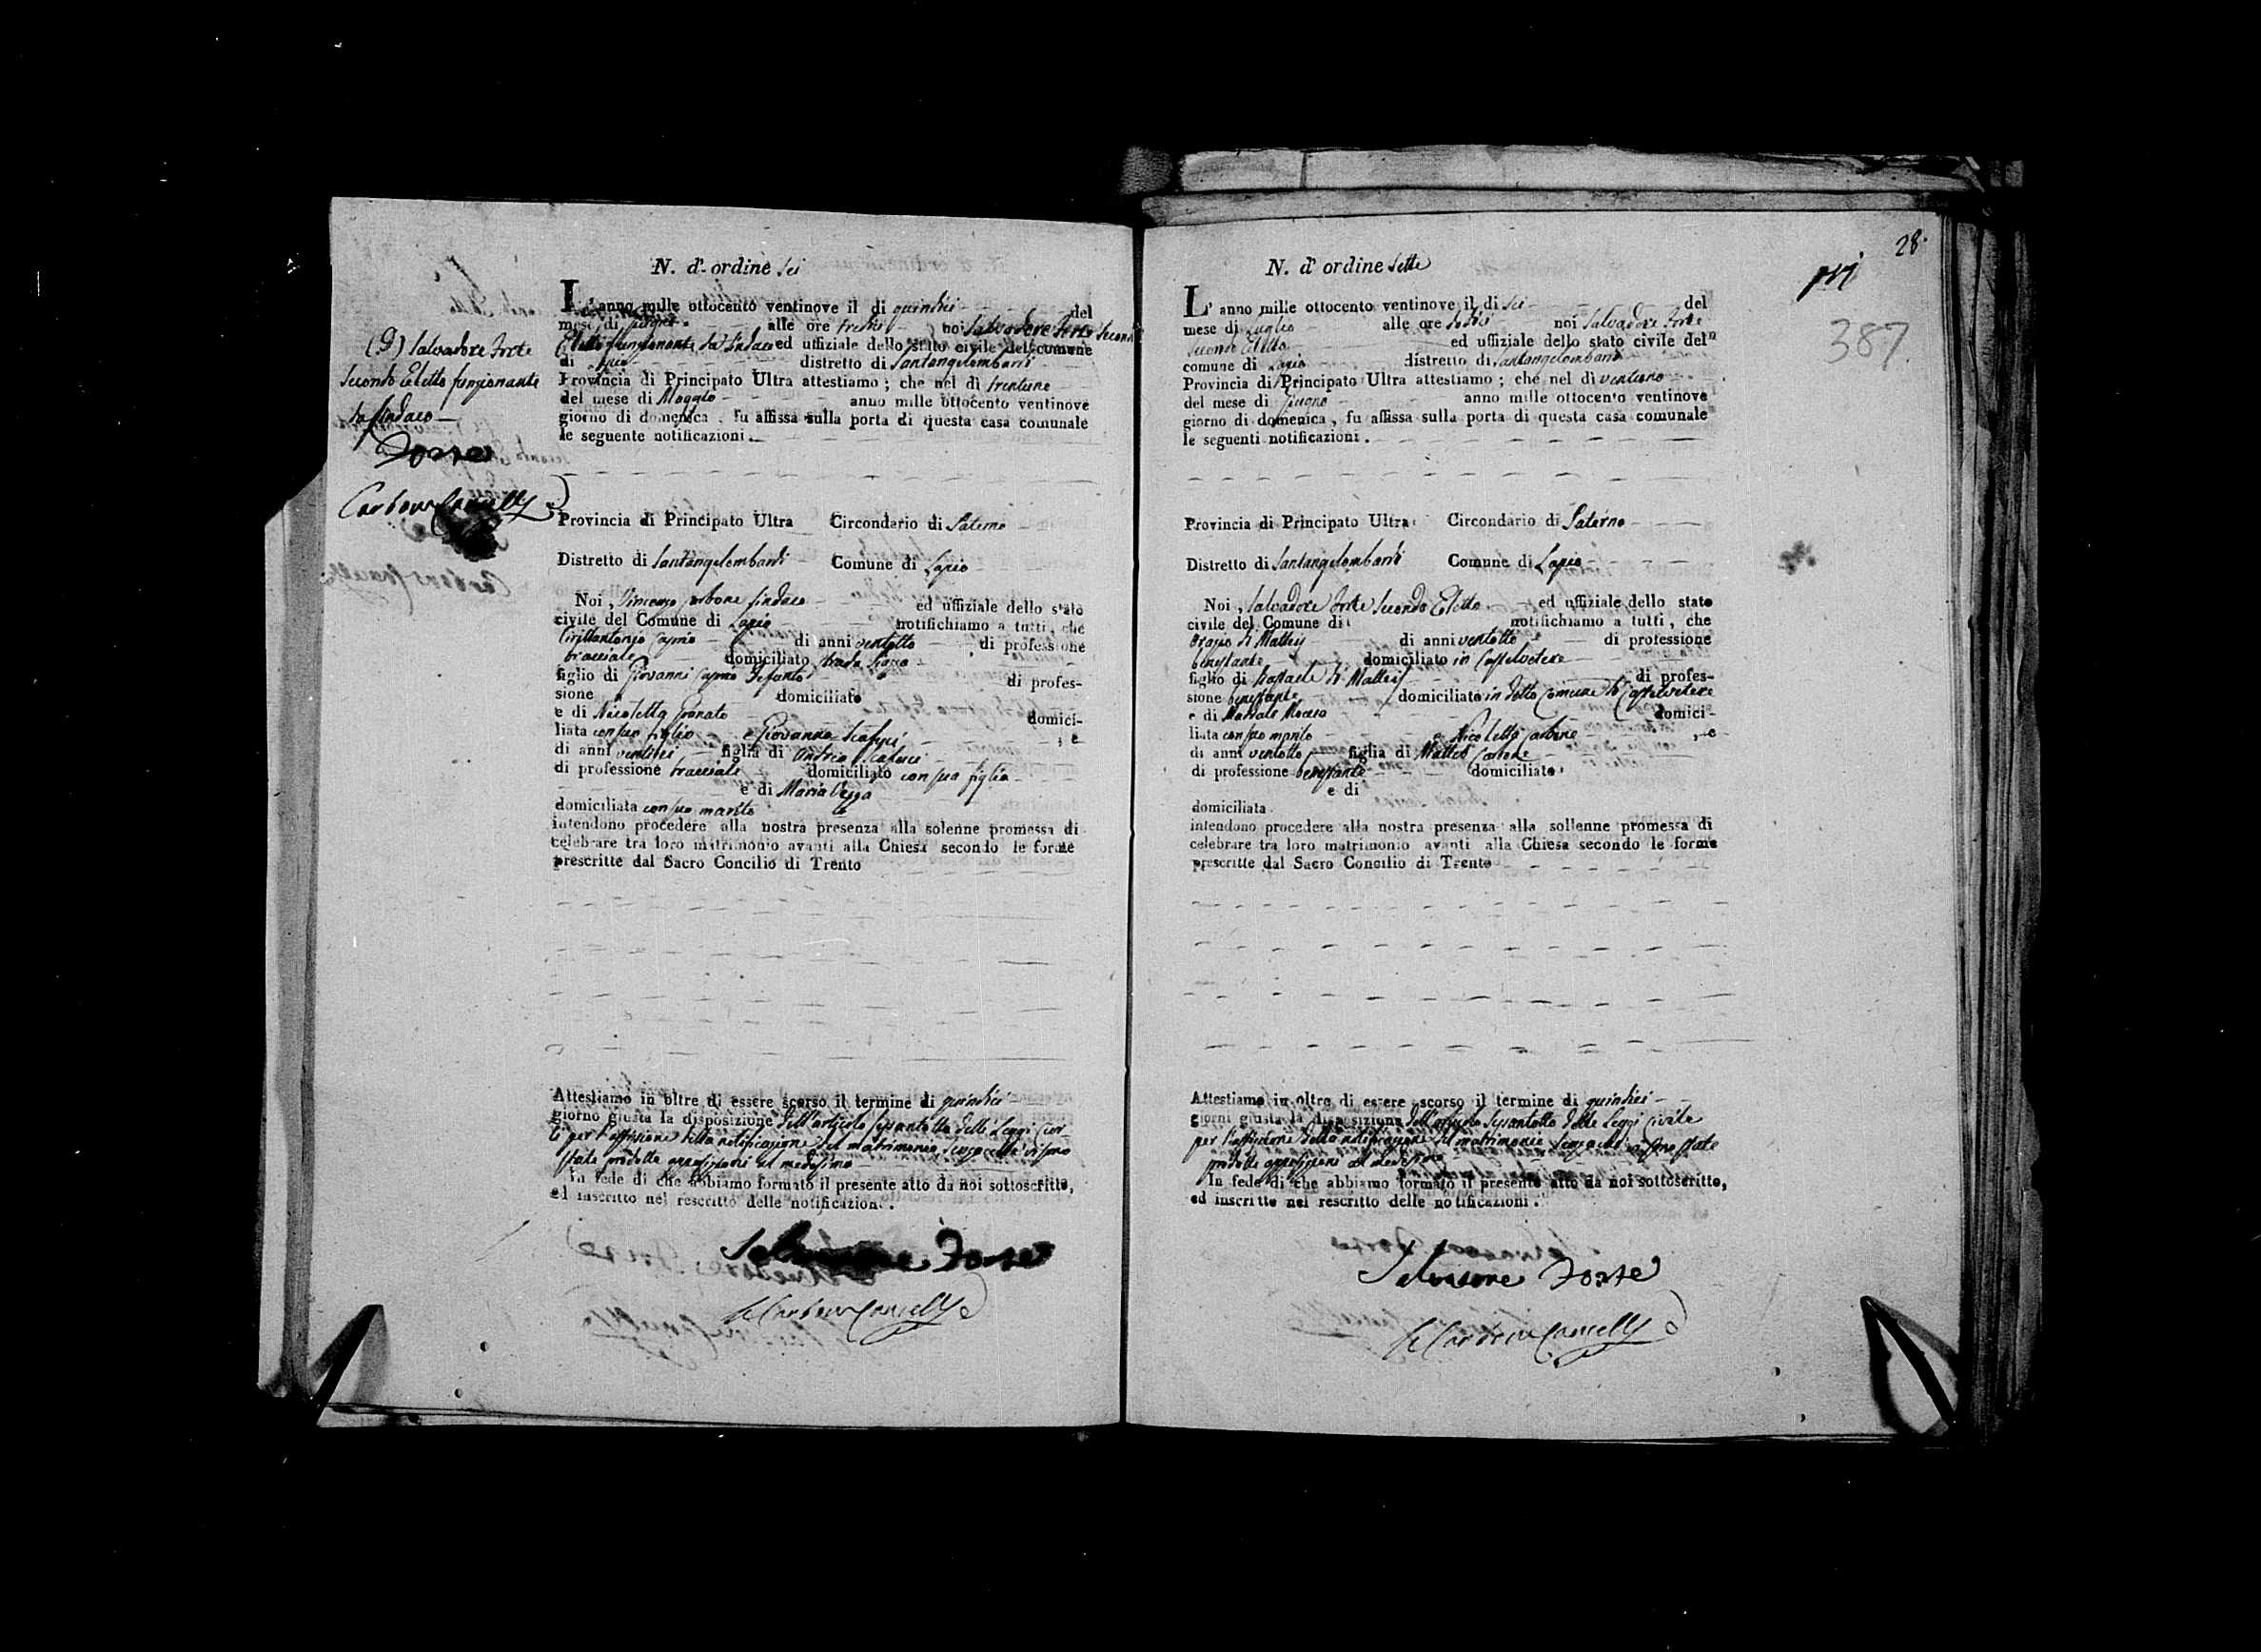 N. d'ordine sei
L'anno mille ottocento ventinove il di quindici del
mese di giugno alle ore tredici noi Salvadore Forte Secondo
Eletto funzionante da Sindaco ed uffiziale dello stato civile del comune
di Lapio distretto di Santangelombardi
Provincia di Principato Ultra attestiamo ; che nel dì trentuno
del mese di Maggio anno mille ottocento ventinove
giorno di domenica , fu affissa sulla porta di questa casa comunale
le seguente notificazioni .
(9) Salvadore Forte
Secondo Eletto funzionante
da Sindaco
Forte
Carbone Cancell
Provincia di Principato Ultra Circondario di Paterno
Distretto di Santangelombardi Comune di Lapio
Noi , Vincenzo Carbone Sindaco ed uffiziale dello stato
civile del Comune di Lapio notifichiamo a tutti , che
Caprio di anni ventotto di professione
bracciale domiciliato strada
figlio di Giovanni Caprio defunto di profes-
sione domiciliato
e di Nicoletta Donato domici-
liata con suo figlio e Giovanna Scafuri , e
di anni figlia di Andrea Scafuri
di professione bracciale domiciliato con sua figlia
e di Maria
domiciliata con suo marito
intendono procedere alla nostra presenza alla solenne promessa di
celebrare tra loro matrimonio avanti alla Chiesa secondo le forme
prescritte dal Sacro Concilio di Trento
Attestiamo in oltre di essere scorso il termine di quindici
giorno giusta la disposizione dell'articolo sessantotto delle Leggi Civi-
li per l'affissione della notificazione del matrimonio, senzacché vi sono
state prodotte opposizioni al medesimo
In fede di che abbiamo formato il presente atto da noi sottoscritto,
ed inscritto nel rescritto delle notificazioni .
Salvadore Forte
Carbone Cancell
28
387.
N. d'ordine sette
L' anno mille ottocento ventinove il di sei del
mese di Luglio alle ore dodici noi Salvadore Forte
Secondo Eletto ed uffiziale dello stato civile del
comune di Lapio distretto di Santangelombardi
Provincia di Principato Ultra attestiamo ; che nel dì ventuno
del mese di Giugno anno mille ottocento ventinove
giorno di domenica , fu affissa sulla porta di questa casa comunale
le seguenti notificazioni .
Provincia di Principato Ultra Circondario di Paterno
Distretto di Santangelombardi Comune di Lapio
Noi , Salvadore Forte Secondo Eletto ed uffiziale dello stato
civile del Comune di notifichiamo a tutti , che
Orazio di Matteis di anni ventotto di professione
benestante domiciliato in Castelvetere
figlio di Raffaele di Matteis di profes-
sione benestante domiciliato in detto Comune di Castelvetere
e di domici-
liata con suo marito e Nicoletta Carbone , e
di anni ventotto figlia di Matteo Carbone
di professione benestante domiciliato
e di
domiciliata
intendono procedere alla nostra presenza alla sollenne promessa di
celebrare tra loro matrimonio avanti alla Chiesa secondo le forme
prescritte dal Sacro Concilio di Trento
Attestiamo in oltre di essere scorso il termine di quindici
giorni giusta la disposizione dell'articolo sessantotto delle Leggi Civile
per l'affissione della notificazione del matrimonio senzacché vi sono state
prodotte opposizioni al medesimo
In fede di che abbiamo formato il presente atto da noi sottoscritto,
ed inscritto nel rescritto delle notificazioni .
Salvadore Forte
Carbone Cancell